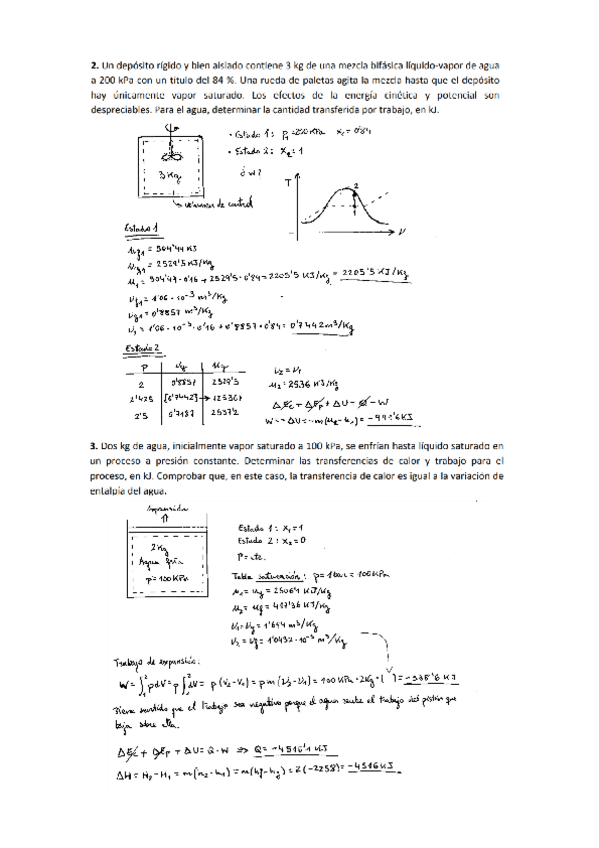 2. Un depósito rígido y bien aislado contiene 3 kg de una mezcla bifásica líquido-vapor de agua
a 200 kPa con un título del 84 %. Una rueda de paletas agita la mezcla hasta que el depósito
hay únicamente vapor saturado. Los efectos de la energía cinética y potencial son
despreciables. Para el agua, determinar la cantidad transferida por trabajo, en kJ.
• Estado 1: p₁=200 KPa x₁ = 0'84
• Estado 2: x₂ = 1
¿ W?
3 Kg
T
2
V
↳ volumen de control
Estado 1
= 504'49 KJ
= 2529'5 KJ/Kg
u₁ = 504'49 · 0'16 + 2529'5 · 0'84 = 2205'5 KJ/Kg = 2205'5 KJ/Kg
vf₁ = 1'06 · 10⁻³ m³/Kg
vg₁ = 0'8857 m³/Kg
v₁ = 1'06 · 10⁻³ · 0'16 + 0'8857 · 0'84 = 0'7442 m³/Kg
Estado 2
P vg ug
2 0'8857 2529'5
2'425 [0'7442] →
2'5 0'7187 2537'2
v₂ = v₁
u₂ = 2536 KJ/Kg
ΔEc + ΔEp + ΔU = Q - W
W = -ΔU = -m(u₂ - u₁) =
3. Dos kg de agua, inicialmente vapor saturado a 100 kPa, se enfrían hasta líquido saturado en
un proceso a presión constante. Determinar las transferencias de calor y trabajo para el
proceso, en kJ. Comprobar que, en este caso, la transferencia de calor es igual a la variación de
entalpía del agua.
2 Kg
Agua
p = 100 KPa
Estado 1: x₁ = 1
Estado 2: x₂ = 0
P = cte.
Tabla saturación: p = 1 bar = 100 KPa
u₁ = ug = 2506'1 KJ/Kg
u₂ = uf = 417'36 KJ/Kg
v₁ = vg = 1'694 m³/Kg
v₂ = vf = 1'0432 · 10⁻³ m³/Kg
Trabajo de expansión:
W = ∫₁² pdV = p∫₁² dV = p(V₂ - V₁) = pm(v₂ - v₁) = 100 KPa · 2Kg · ( ) = -338'6 KJ
Tiene sentido que el trabajo sea negativo porque el agua recibe el trabajo del pistón que
baja sobre ella.
ΔEc + ΔEp + ΔU = Q - W ⇒ Q = -4516'1 KJ
ΔH = H₂ - H₁ = m(h₂ - h₁) = m(hf - hg) = 2(-2258) = -4516 KJ